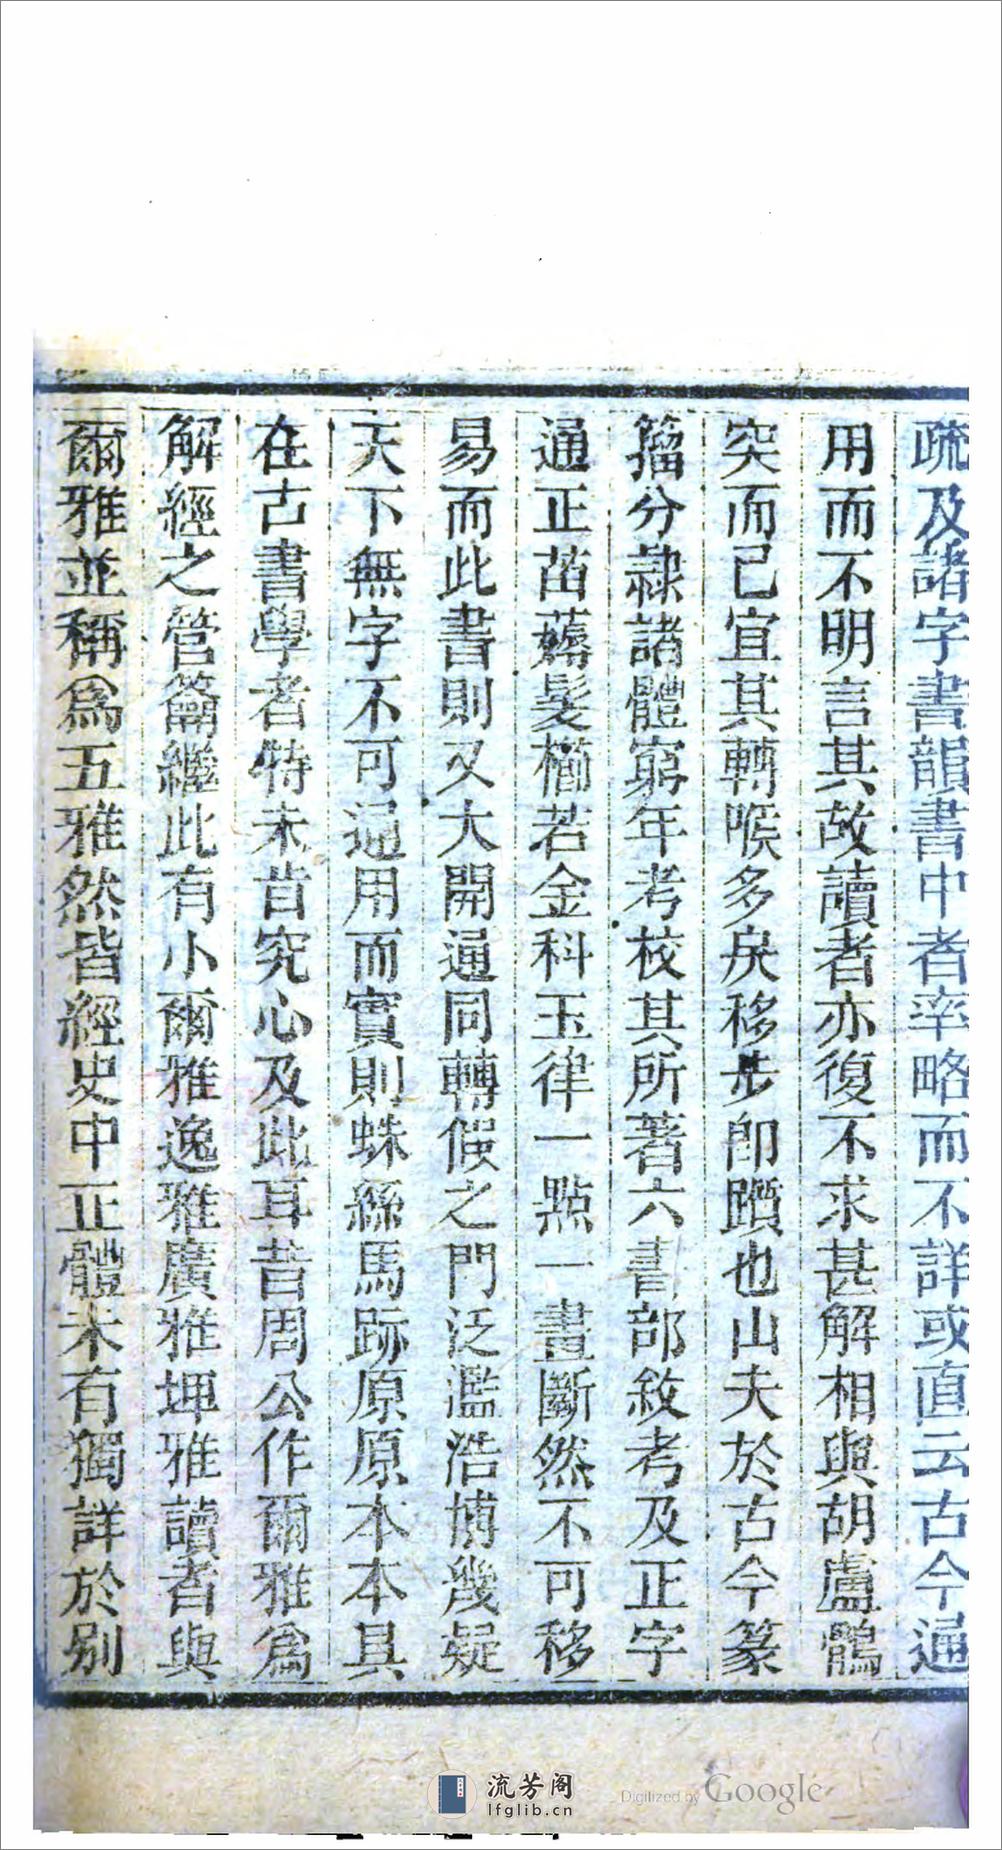 疏及諸字書韻書中者率略而不詳或直云古今通
用而不明言其故讀者亦復不求甚解相與胡盧鶻
突而已宜其轉喉多戾移步卽躓也山夫於古今篆
籀分隷諸體窮年考校其所著六書部敘考及正字
通正苗薅髮櫛若金科玉律一點一畫斷然不可移
易而此書則又大開通同轉假之門泛濫浩博幾疑
天下無字不可通用而實則蛛絲馬跡原原本本具
在古書學者特未肯究心及此耳昔周公作爾雅爲
解經之管籥繼此有小爾雅逸雅廣雅埤雅讀者與
爾雅並稱爲五雅然皆經史中正體未有獨詳於別
流芳阁
lfglib.cn
Digitized by Google